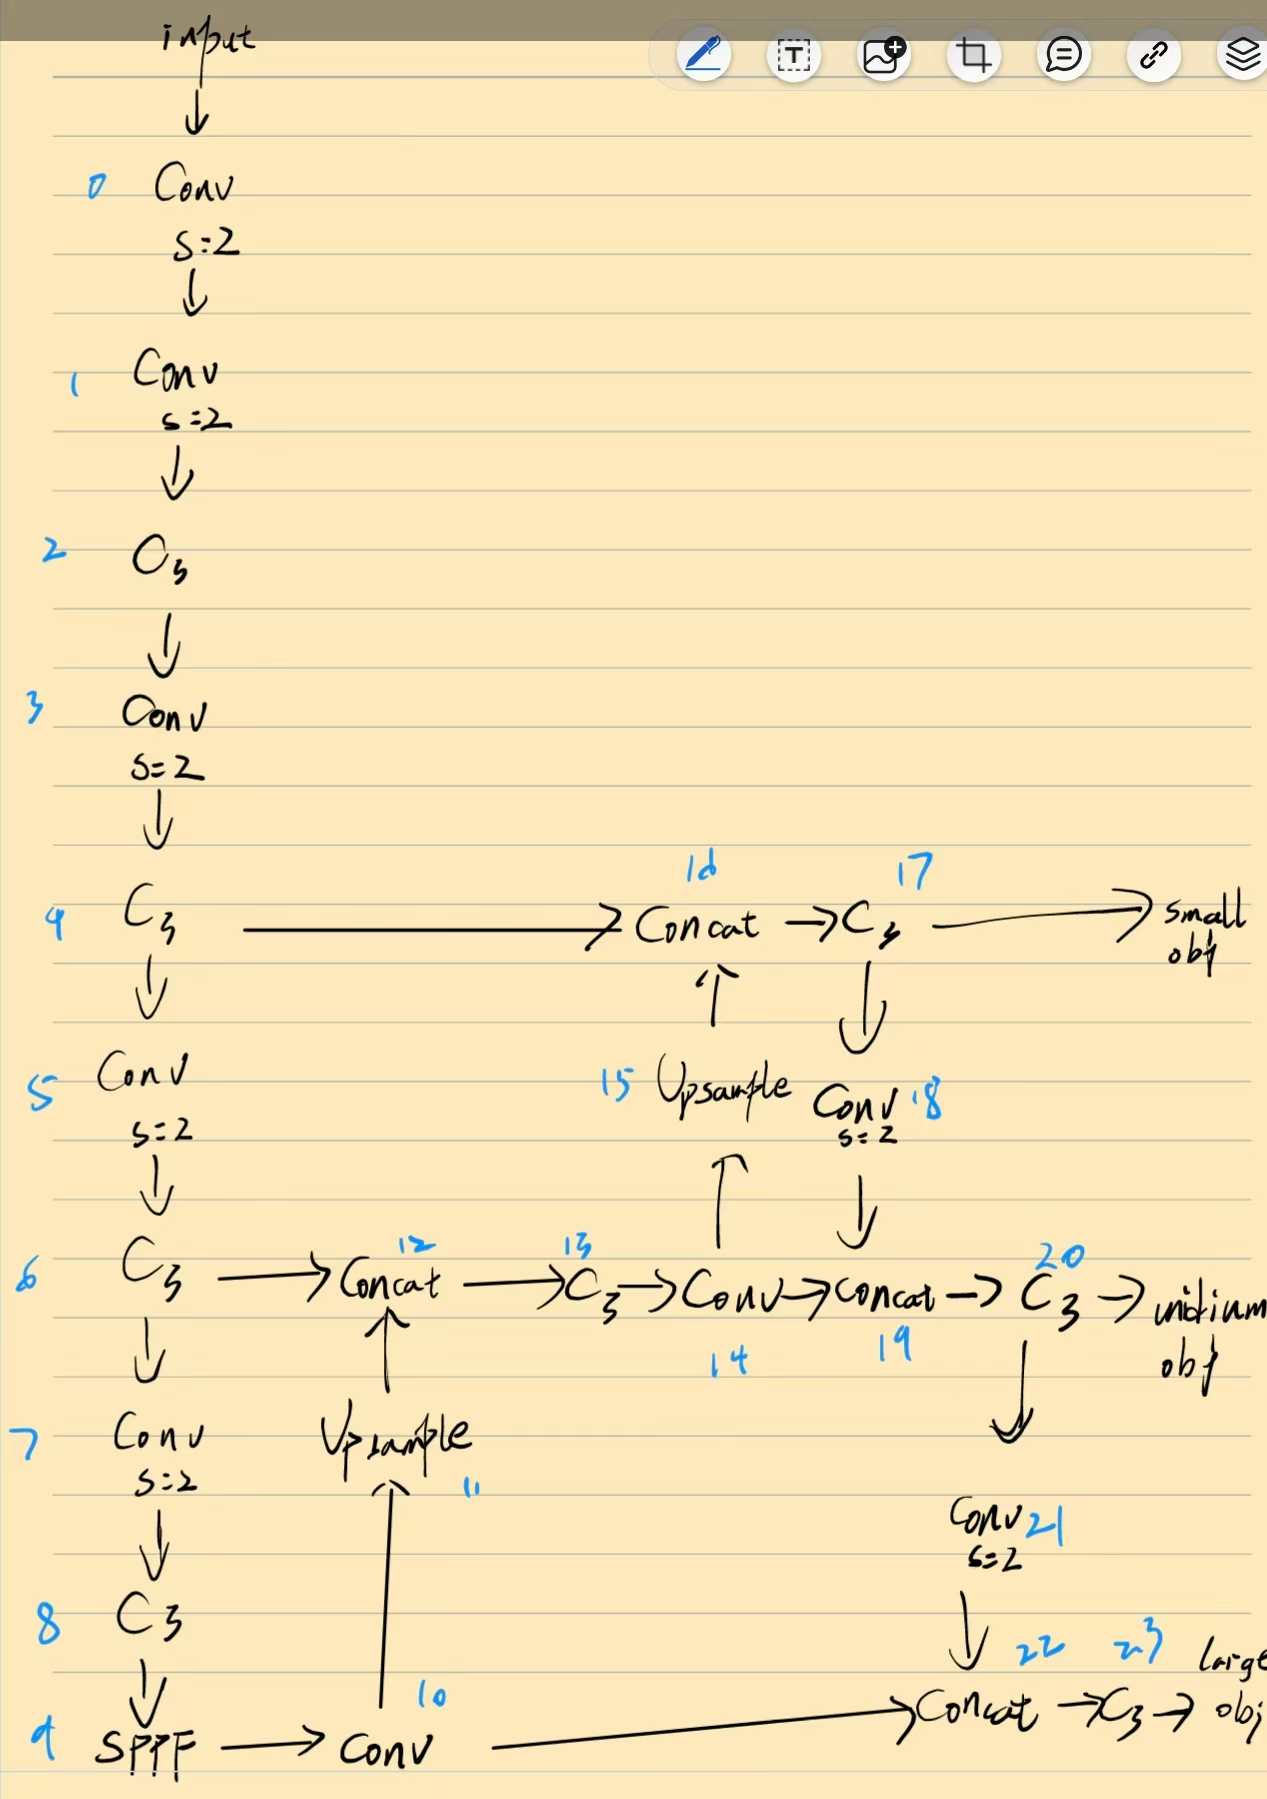 input
0 Conv
s=2
1 Conv
s=2
2 C3
3 Conv
s=2
4 C3
16
Concat
17
C3
small
obj
5 Conv
s=2
15 Upsample
Conv 18
s=2
6 C3
12
Concat
13
C3
Conv
14
concat
19
20
C3
obj
7 Conv
s=2
Upsample
11
Conv 21
s=2
8 C3
22
Concat
23
C3
large
obj
9 SPPF
10
Conv